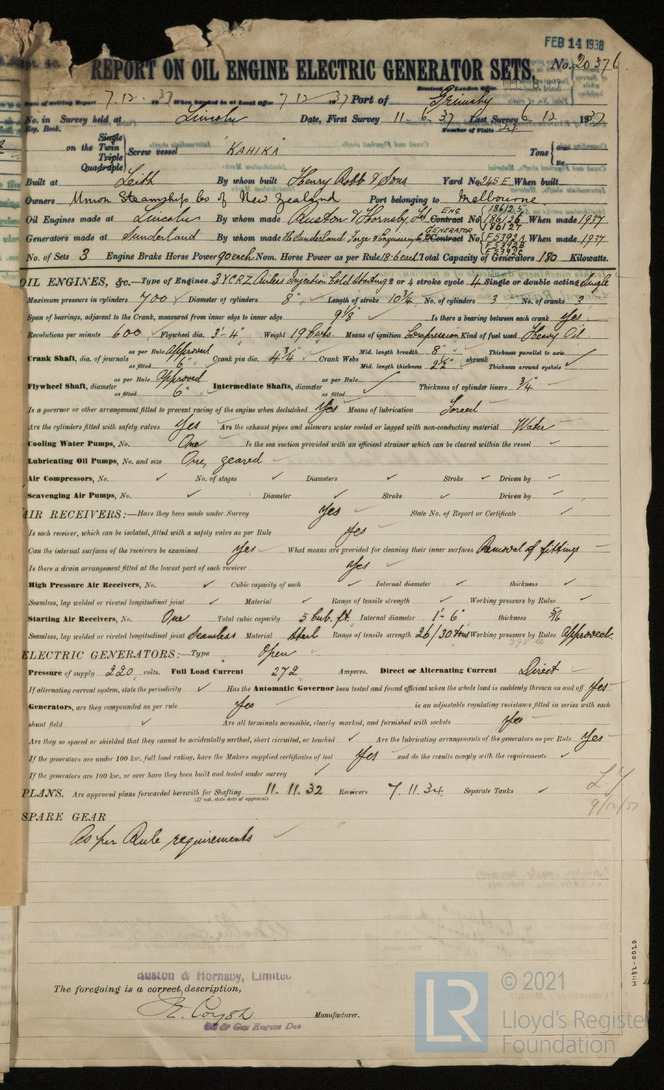 FEB 14 1938
Rpt. 4c.
REPORT ON OIL ENGINE ELECTRIC GENERATOR SETS. No. 20376
Date of writing Report 7.12.1937 When handed in at Local Office 7 12 1937 Port of Grimsby
No. in Survey held at Lincoln Date, First Survey 11.6.37 Last Survey 6.12.1937
Reg. Book. Number of Visits
on the Single Twin Triple Quadruple Screw vessel KAHIKA Tons Gross Net
Built at Leith By whom built Henry Robb & Sons Yard No. 245 E When built
Owners Union Steamship Co of New Zealand Port belonging to Melbourne
Oil Engines made at Lincoln By whom made Ruston & Hornsby Ltd Contract ENG No. 186125 186126 186127 When made 1937
Generators made at Sunderland By whom made The Sunderland Forge & Engineering Contract GENERATOR No. When made 1937
No. of Sets 3 Engine Brake Horse Power 90 each Nom. Horse Power as per Rule 18.6 each Total Capacity of Generators 180 Kilowatts.
OIL ENGINES, &c.—Type of Engines 3 VCRZ Airless Injection Cold Starting 2 or 4 stroke cycle 4 Single or double acting Single
Maximum pressure in cylinders 700 Diameter of cylinders 8" Length of stroke 10¾ No. of cylinders 3 No. of cranks 3
Span of bearings, adjacent to the Crank, measured from inner edge to inner edge 9⅛ Is there a bearing between each crank yes
Revolutions per minute 600 Flywheel dia. 3'-4" Weight 19 cwts. Means of ignition Compression Kind of fuel used Heavy Oil
Crank Shaft, dia. of journals as per Rule Approved as fitted 6" Crank pin dia. 4¾" Crank Webs Mid. length breadth 8" Mid. length thickness shrunk Thickness parallel to axis Thickness around eyehole
Flywheel Shaft, diameter as per Rule Approved as fitted 6" Intermediate Shafts, diameter as per Rule as fitted Thickness of cylinder liners ¾"
Is a governor or other arrangement fitted to prevent racing of the engine when declutched Yes Means of lubrication Forced
Are the cylinders fitted with safety valves Yes Are the exhaust pipes and silencers water cooled or lagged with non-conducting material Water
Cooling Water Pumps, No. One Is the sea suction provided with an efficient strainer which can be cleared within the vessel
Lubricating Oil Pumps, No. and size One, geared
Air Compressors, No. No. of stages Diameters Stroke Driven by
Scavenging Air Pumps, No. Diameter Stroke Driven by
AIR RECEIVERS:—Have they been made under Survey Yes State No. of Report or Certificate
Is each receiver, which can be isolated, fitted with a safety valve as per Rule yes
Can the internal surfaces of the receivers be examined yes What means are provided for cleaning their inner surfaces Removal of fittings
Is there a drain arrangement fitted at the lowest part of each receiver yes
High Pressure Air Receivers, No. Cubic capacity of each Internal diameter thickness
Seamless, lap welded or riveted longitudinal joint Material Range of tensile strength Working pressure by Rules
Starting Air Receivers, No. One Total cubic capacity 5 Cub. ft. Internal diameter 1'-6" thickness 5/16
Seamless, lap welded or riveted longitudinal joint Seamless Material Steel Range of tensile strength 26/30 tons Working pressure by Rules Approved.
ELECTRIC GENERATORS:—Type Open
Pressure of supply 220 volts. Full Load Current 272 Amperes. Direct or Alternating Current Direct
If alternating current system, state the periodicity Has the Automatic Governor been tested and found efficient when the whole load is suddenly thrown on and off yes
Generators, are they compounded as per rule yes is an adjustable regulating resistance fitted in series with each
shunt field Are all terminals accessible, clearly marked, and furnished with sockets yes
Are they so spaced or shielded that they cannot be accidentally earthed, short circuited, or touched Are the lubricating arrangements of the generators as per Rule Yes
If the generators are under 100 kw. full load rating, have the Makers supplied certificates of test Yes and do the results comply with the requirements
If the generators are 100 kw. or over have they been built and tested under survey
PLANS. Are approved plans forwarded herewith for Shafting 11.11.32 Receivers 7.11.34 Separate Tanks
(If not, state date of approval)
SPARE GEAR
As per Rule requirements
Ruston & Hornsby, Limited
The foregoing is a correct description,
Manufacturer.
Oil & Gas Engine Dep
© 2021
LR Lloyd's Register
Foundation